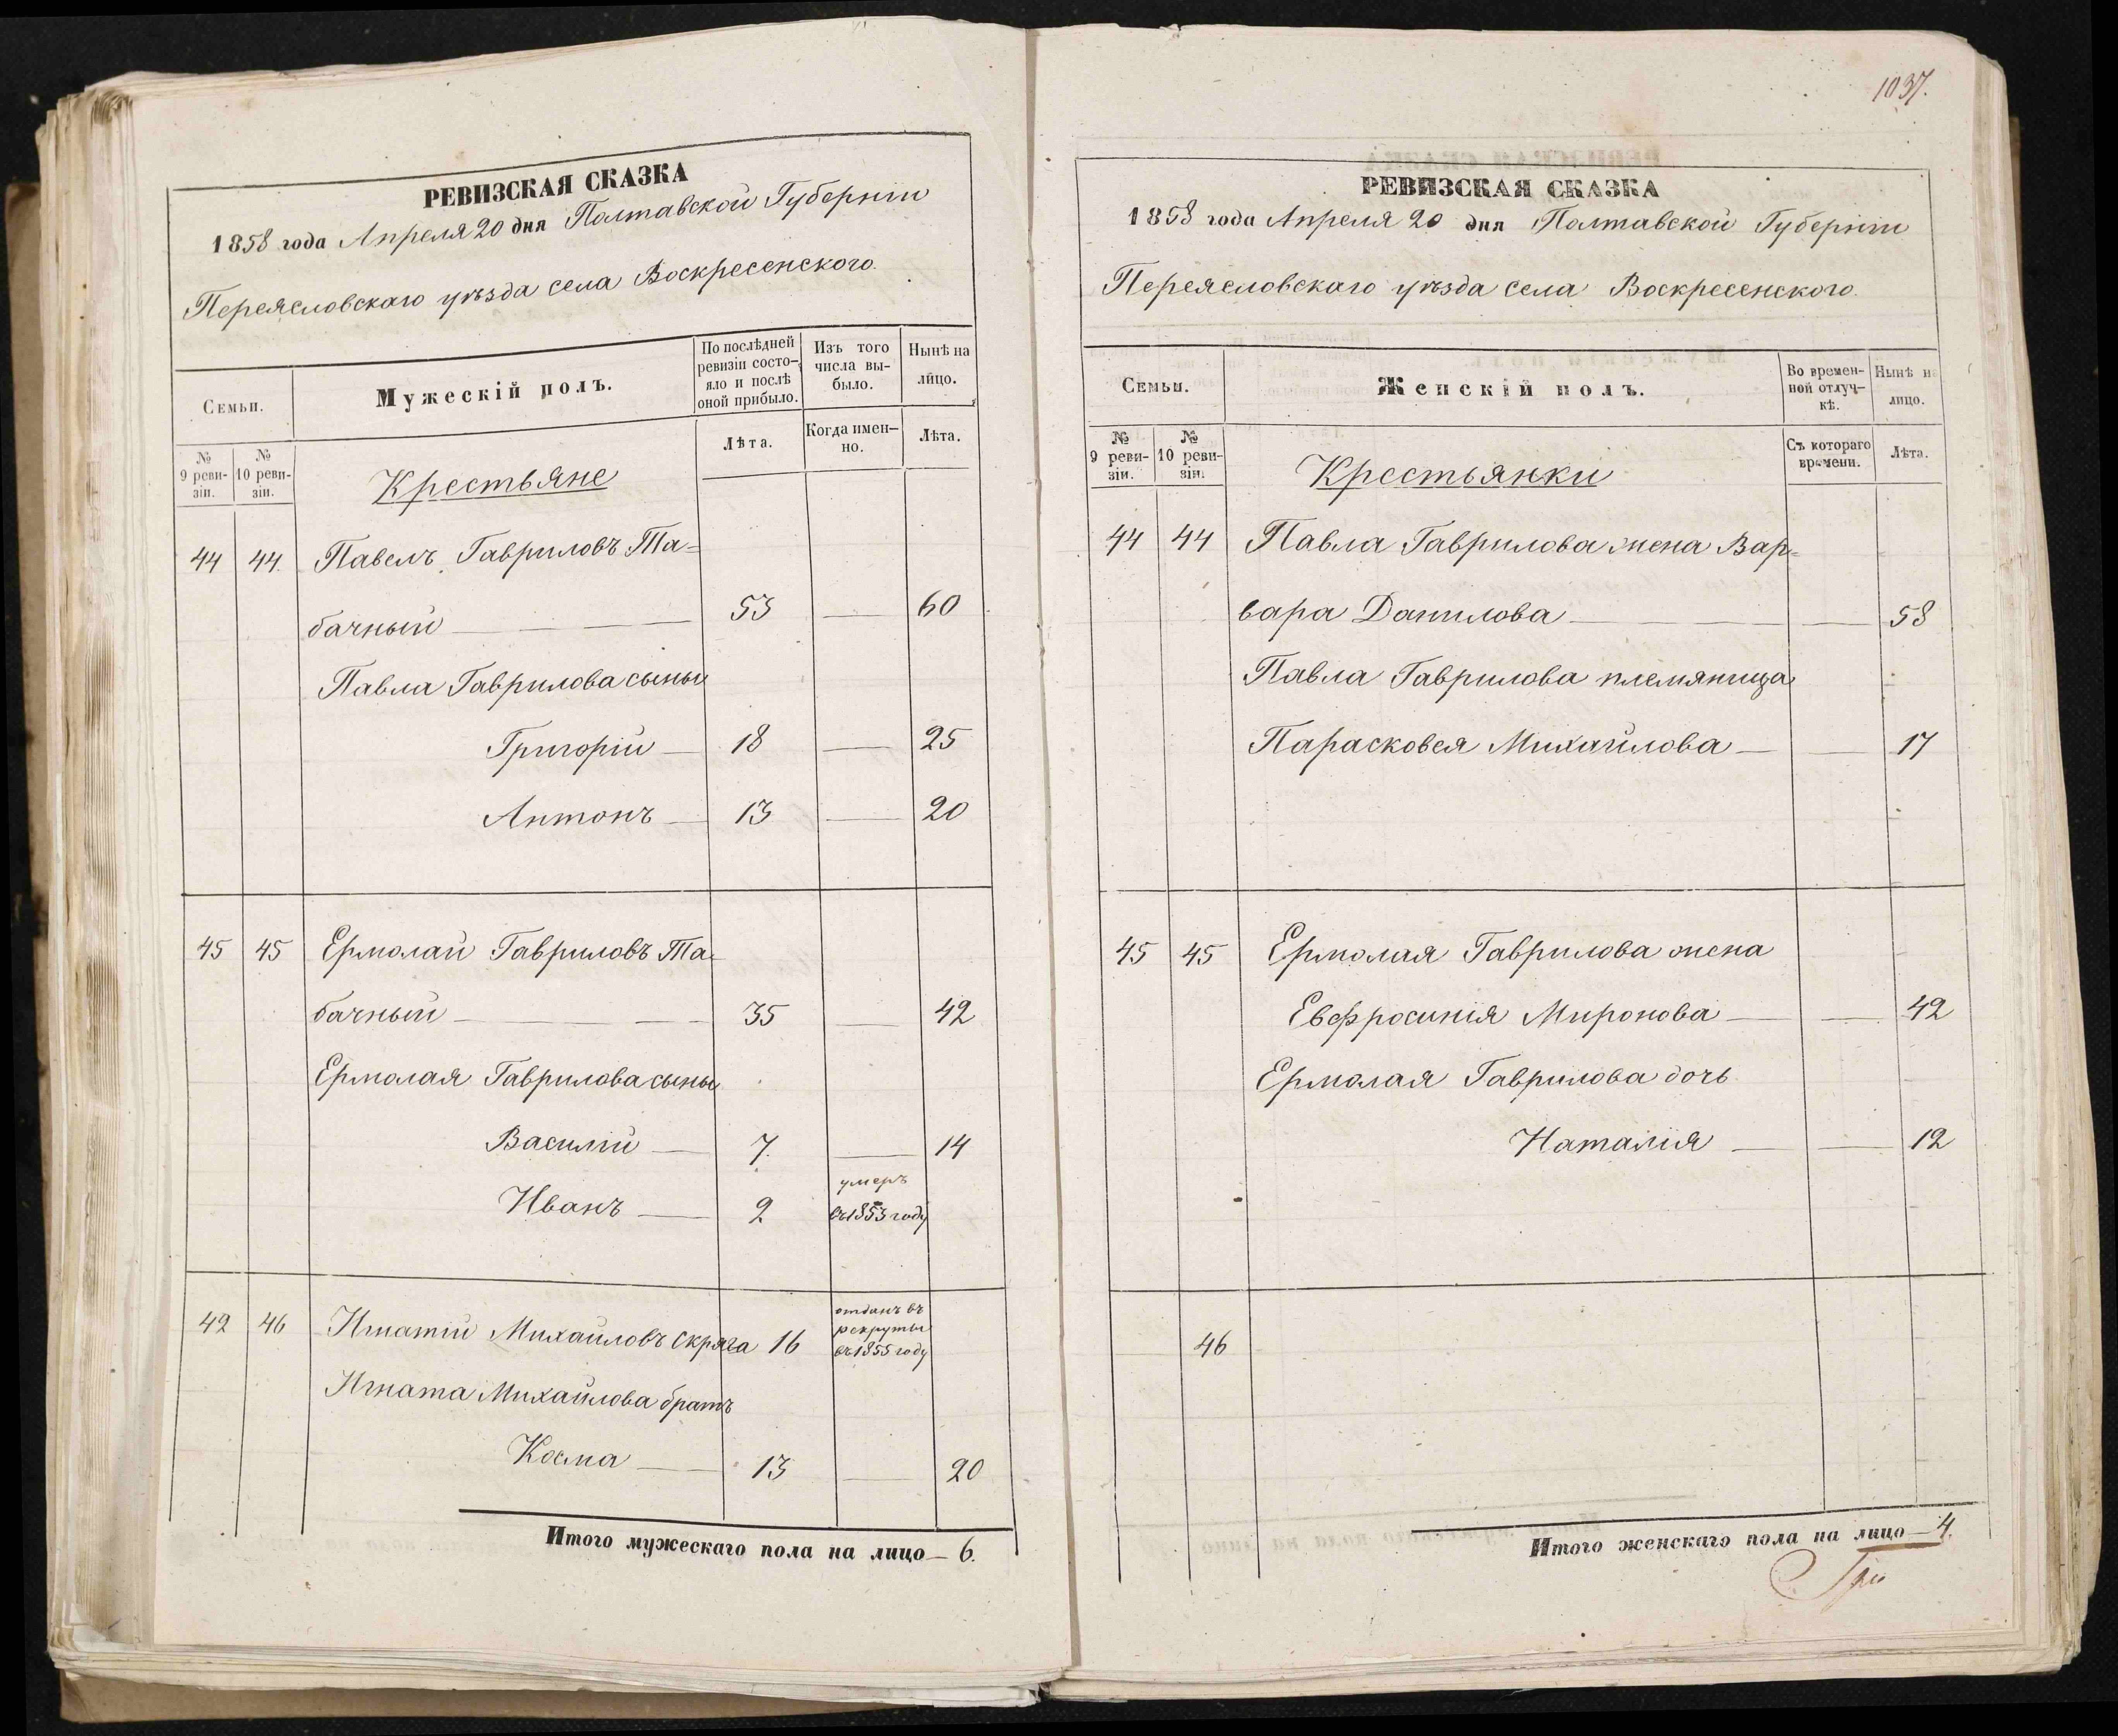 РЕВИЗСКАЯ СКАЗКА
1858 года Апреля 20 дня Полтавской Губерніи
Переясловскаго уѣзда села Воскресенского.
Семьи.
Мужескій полъ.
По послѣдней ревизіи состо-яло и послѣ оной прибыло.
Изъ того числа вы-было.
Нынѣ на лицо.
№ 9 реви-зіи.
№ 10 реви-зіи.
Крестьяне
Лѣта.
Когда имен-но.
Лѣта.
44 44 Павелъ Гавриловъ Та=
бачный — 53 — 60
Павла Гаврилова сыны
Григорій — 18 — 25
Антонъ — 13 — 20
45 45 Ермолай Гавриловъ Та=
бачный — 35 — 42
Ермолая Гаврилова сыны
Василій — 7 — 14
Иванъ — 2 умеръ въ 1853 году
42 46 Игнатій Михайловъ Скряга 16 отданъ въ рекруты въ 1855 году
Игната Михайлова братъ
Косма — 13 — 20
Итого мужескаго пола на лицо — 6.
1037.
РЕВИЗСКАЯ СКАЗКА
1858 года Апреля 20 дня Полтавской Губерніи
Переясловскаго уѣзда села Воскресенского.
Семьи.
Женскій полъ.
Во времен-ной отлуч-кѣ.
Нынѣ на лицо.
№ 9 реви-зіи.
№ 10 реви-зіи.
Крестьянки
Съ котораго времени.
Лѣта.
44 44 Павла Гаврилова жена Вар=
вара Данилова — — 58
Павла Гаврилова племяница
Парасковея Михайлова — — 17
45 45 Ермолая Гаврилова жена
Евфросинія Миронова — — 42
Ермолая Гаврилова дочь
Наталія — — 12
46
Итого женскаго пола на лицо — 4.